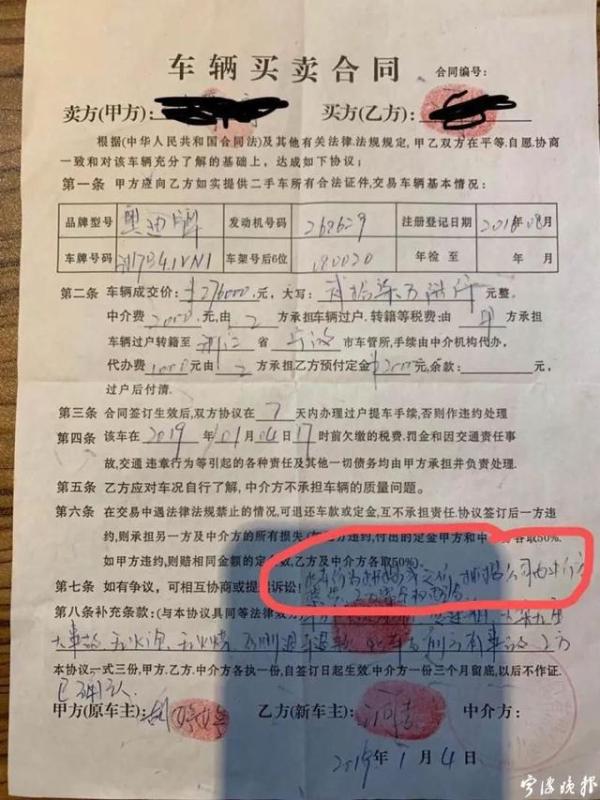 车辆买卖合同 合同编号:
卖方(甲方): 买方(乙方):
根据(中华人民共和国合同法)及其他有关法律.法规规定, 甲乙双方在平等.自愿.协商
一致和对该车辆充分了解的基础上, 达成如下协议;
第一条 甲方应向乙方如实提供二手车所有合法证件,交易车辆基本情况:
品牌型号 奥迪牌 发动机号码 268629 注册登记日期 2018年08月
车牌号码 车架号后6位 年检至 年 月
第二条 车辆成交价: 276000 元, 大写: 元整。
中介费 2000 元,由 乙 方承担车辆过户.转籍等税费:由 甲 方承担
车辆过户转籍至 浙江 省 宁波 市车管所,手续由中介机构代办,
代办费 1000 元由 乙 方承担乙方预付定金 元,余款: 元,
过户后付清.
第三条 合同签订生效后,双方协议在 7 天内办理过户提车手续,否则作违约处理
第四条 该车在 2019 年 01 月 04 日 17 时前欠缴的税费.罚金和因交通责任事
故,交通违章行为等引起的各种责任及其他一切债务均由甲方承担并负责处理.
第五条 乙方应对车况自行了解, 中介方不承担车辆的质量问题。
第六条 在交易中遇法律法规禁止的情况,可退还车款或定金, 互不承担责任. 协议签订后一方违
约, 则承担另一方及中介方的所有损失 违约, 付出的定金甲方和中 各取50%.
如甲方违约, 则赔相同金额的定 乙方及中介方各取50%).
第七条 如有争议, 可相互协商或提 诉讼!
第八条补充条款:(与本协议具同等法律效
大事故 无水泡 无火烧 否则退车退款
本协议一式三份, 甲方.乙方.中介方各执一份,自签订日起生效. 中介方一份三个月留底, 以后不作证.
甲方(原车主): 乙方(新车主): 中介方:
2019年1月4日
宁波晚报